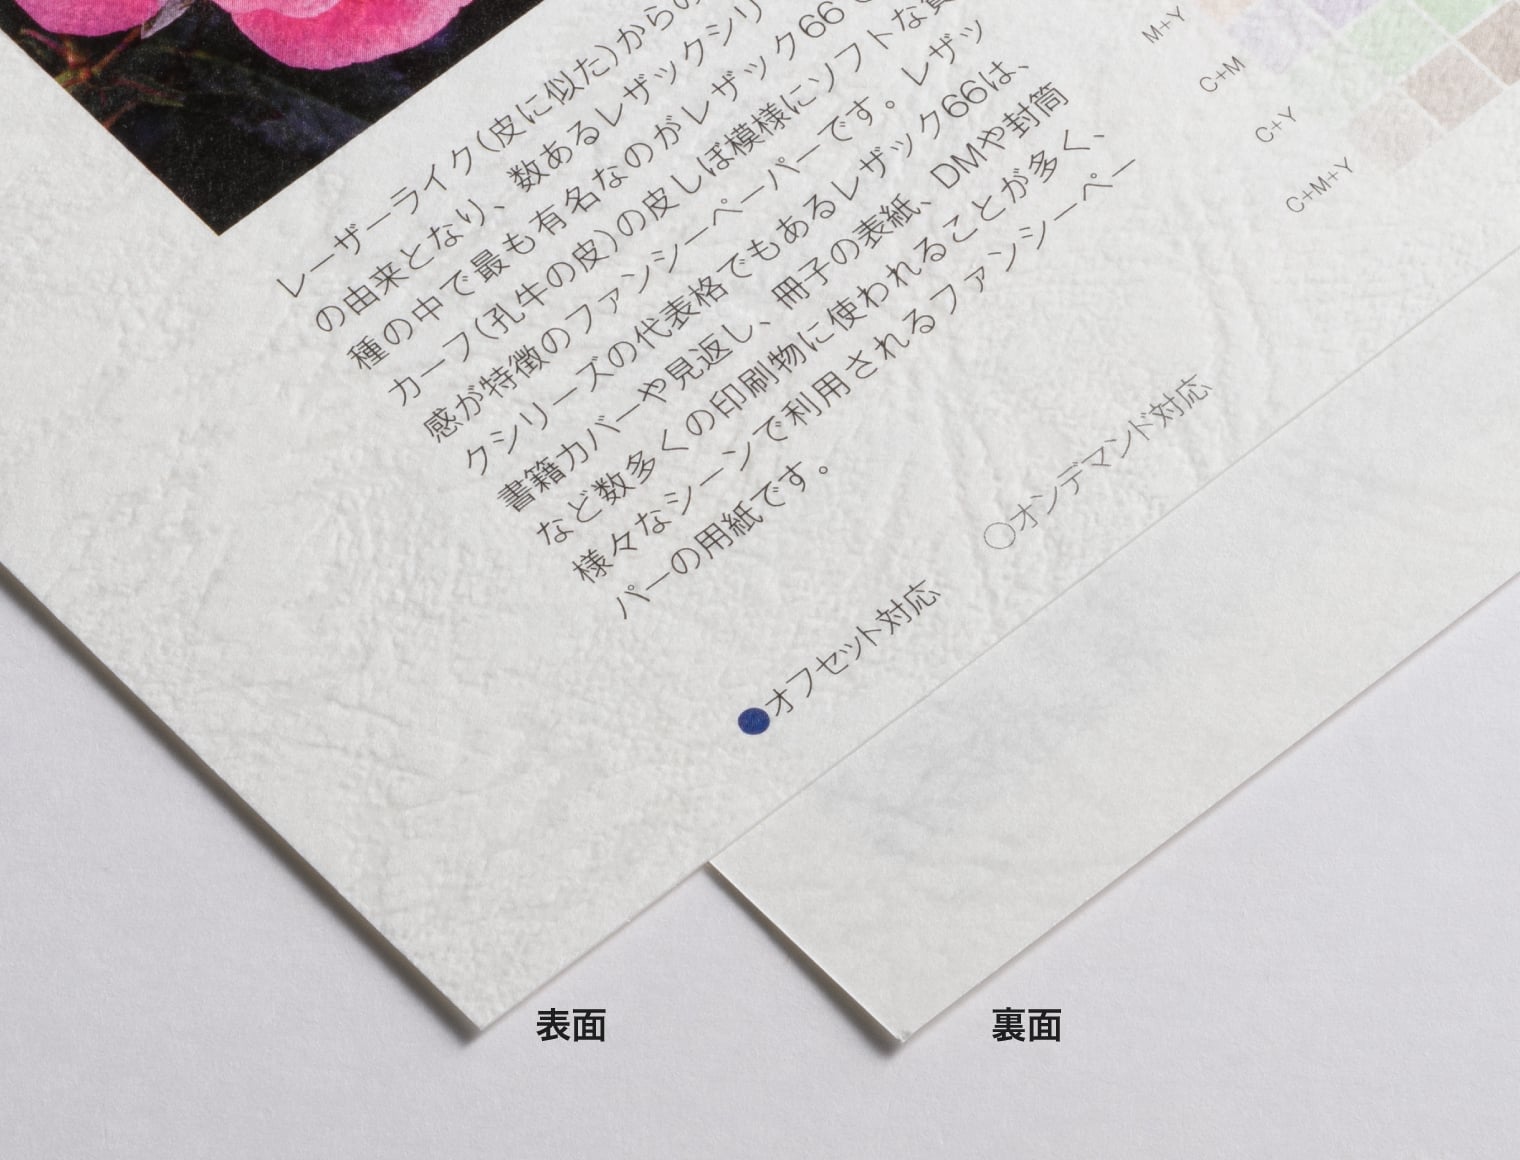 レーザーライク(皮に似た)からの
の由来となり、数あるレザックシリ
種の中で最も有名なのがレザック66で
カーフ(孔牛の皮)の皮しぼ模様にソフトな質
感が特徴のファンシーペーパーです。レザッ
クシリーズの代表格でもあるレザック66は、
書籍カバーや見返し、冊子の表紙、DMや封筒
など数多くの印刷物に使われることが多く、
様々なシーンで利用されるファンシーペー
パーの用紙です。
●オフセット対応
○オンデマンド対応
M+Y
C+M
C+Y
C+M+Y
表面
裏面